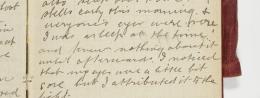 shells early this morning &
everyone's eyes were sore
I was asleep at the time,
and knew nothing about it
until afterwards. I noticed
that my eyes were a little bit
sore but I attributed it to the
light.